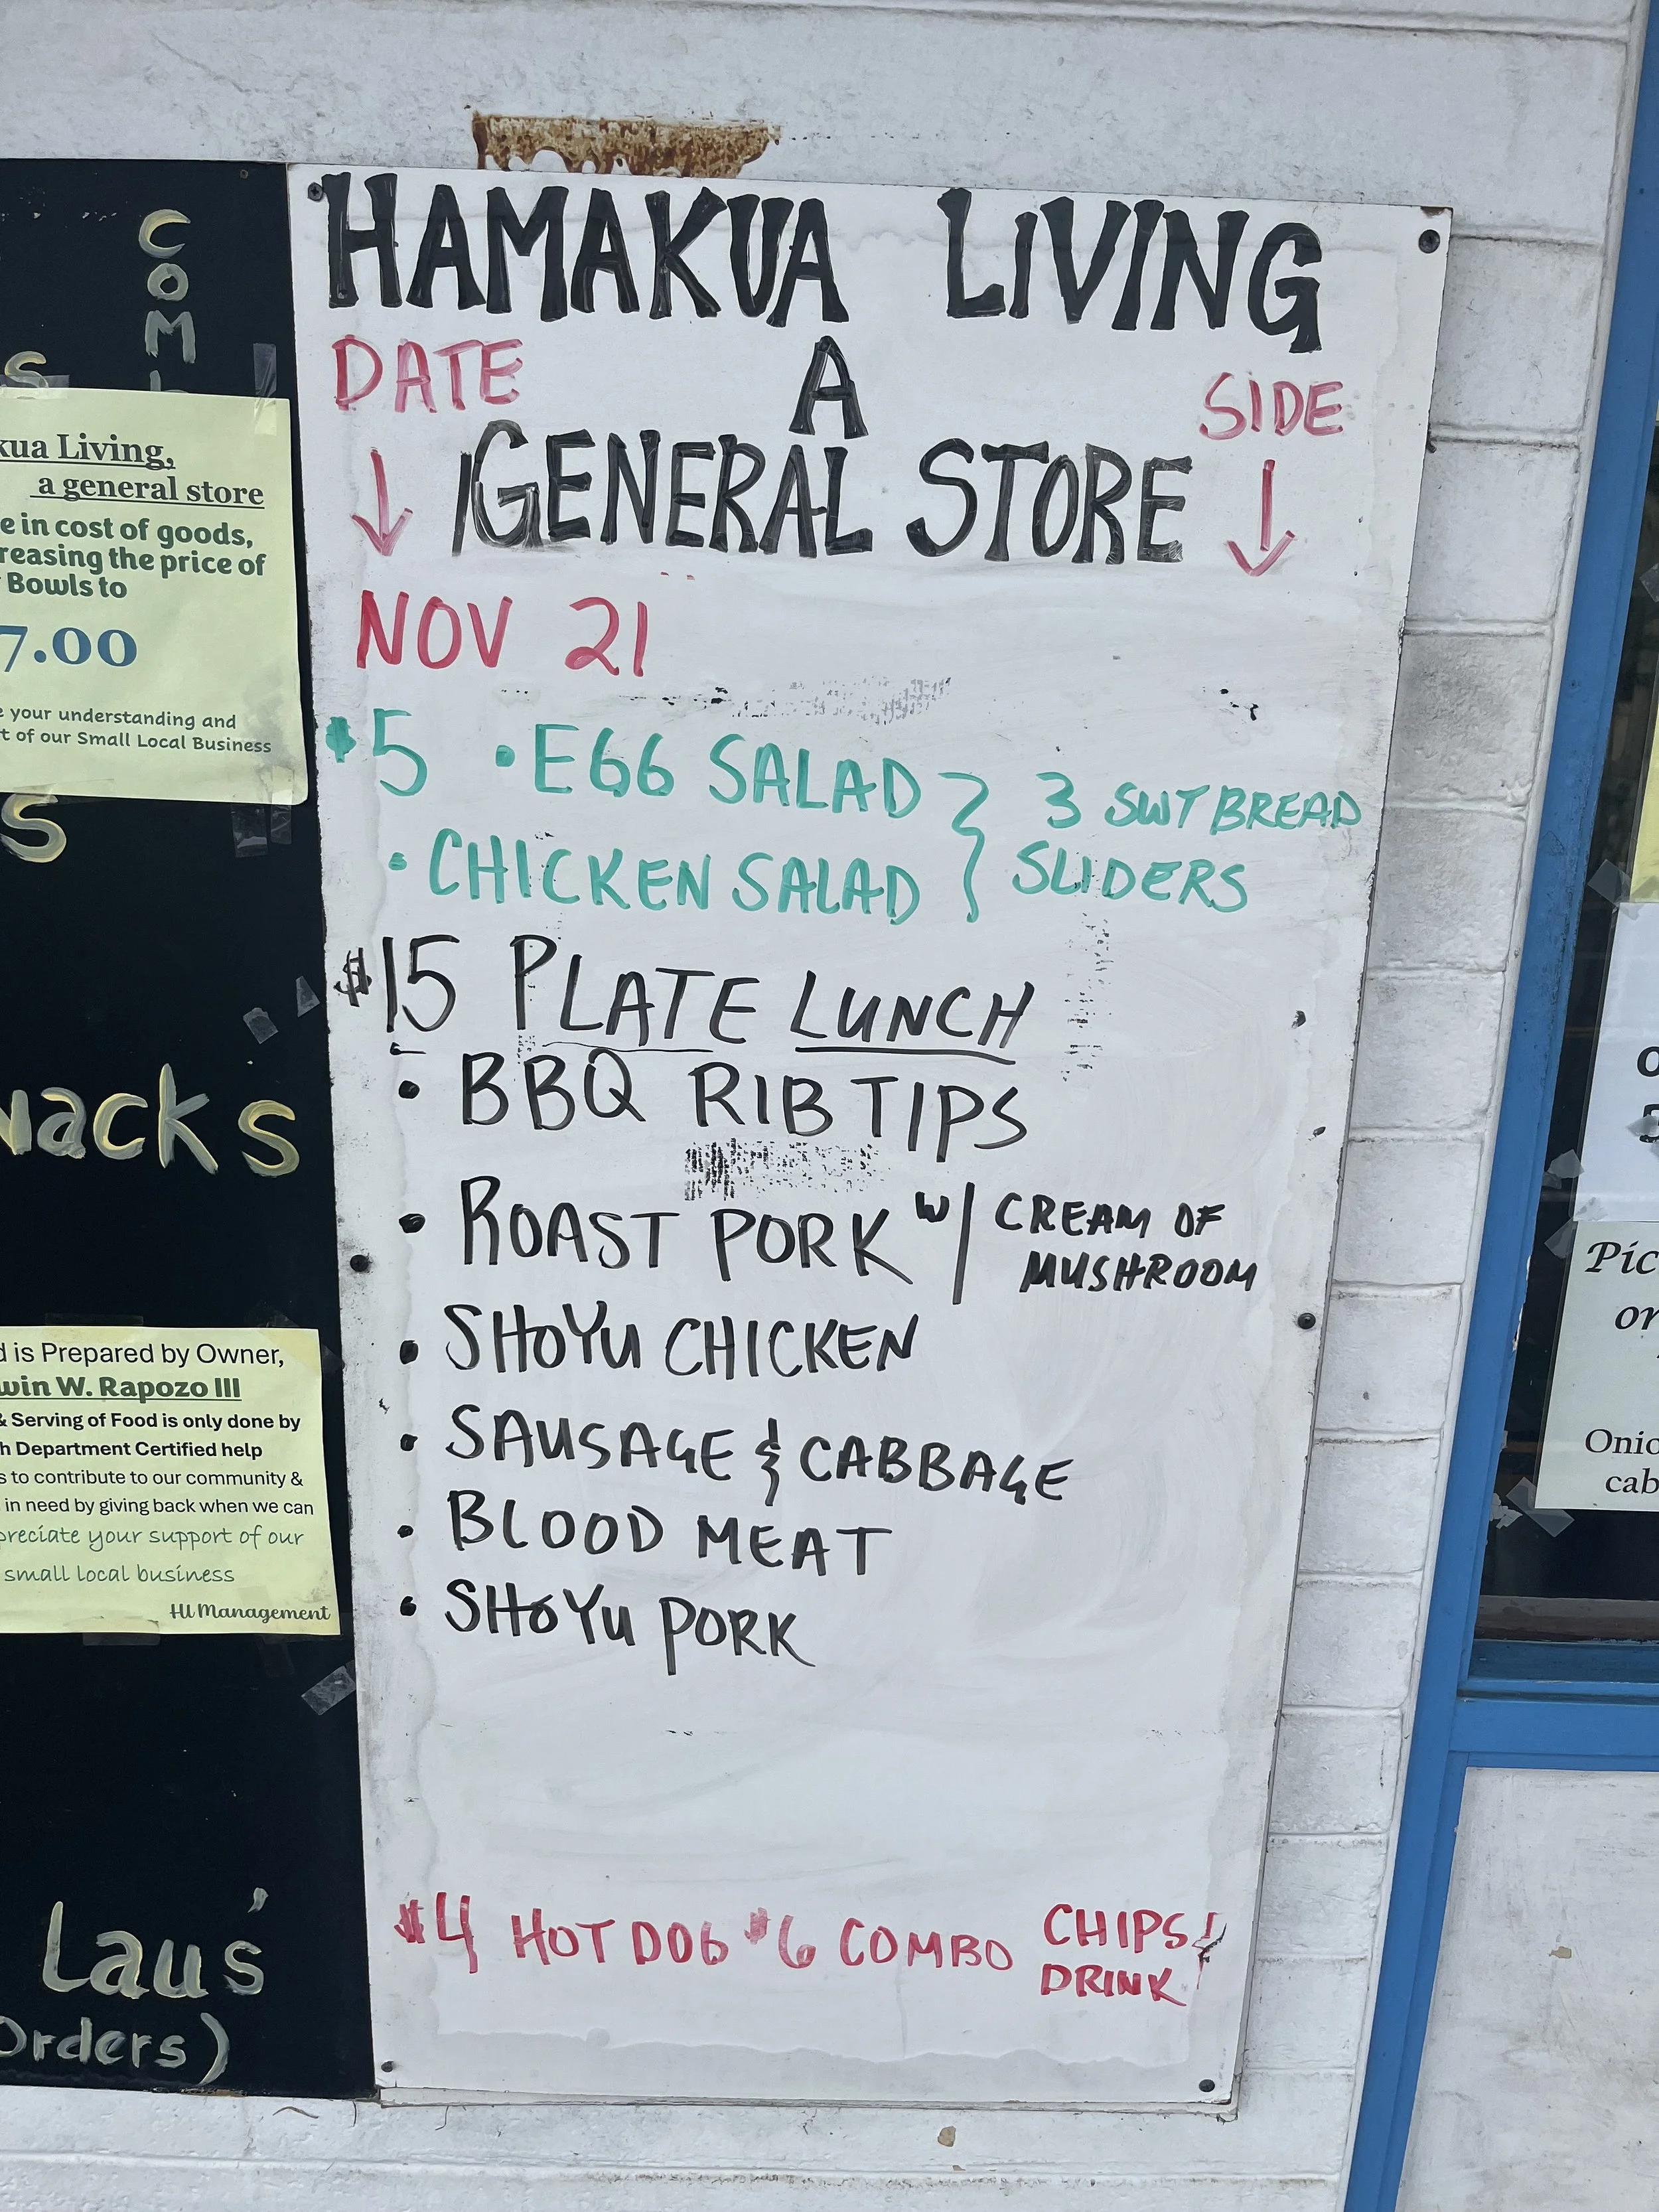 COM
S
kua Living,
a general store
e in cost of goods,
reasing the price of
Bowls to
7.00
e your understanding and
t of our Small Local Business
S
nacks
d is Prepared by Owner,
win W. Rapozo III
& Serving of Food is only done by
h Department Certified help
s to contribute to our community &
in need by giving back when we can
preciate your support of our
small local business
HL Management
Laus'
Orders)
HAMAKUA LIVING
DATE A SIDE
GENERAL STORE
NOV 21
$5 • EGG SALAD } 3 SWT BREAD
• CHICKEN SALAD } SLIDERS
$15 PLATE LUNCH
• BBQ RIB TIPS
• ROAST PORK W/ CREAM OF
MUSHROOM
• SHOYU CHICKEN
• SAUSAGE & CABBAGE
• BLOOD MEAT
• SHOYU PORK
$4 HOT DOG $6 COMBO CHIPS &
DRINK
Pic
or
Onic
cab